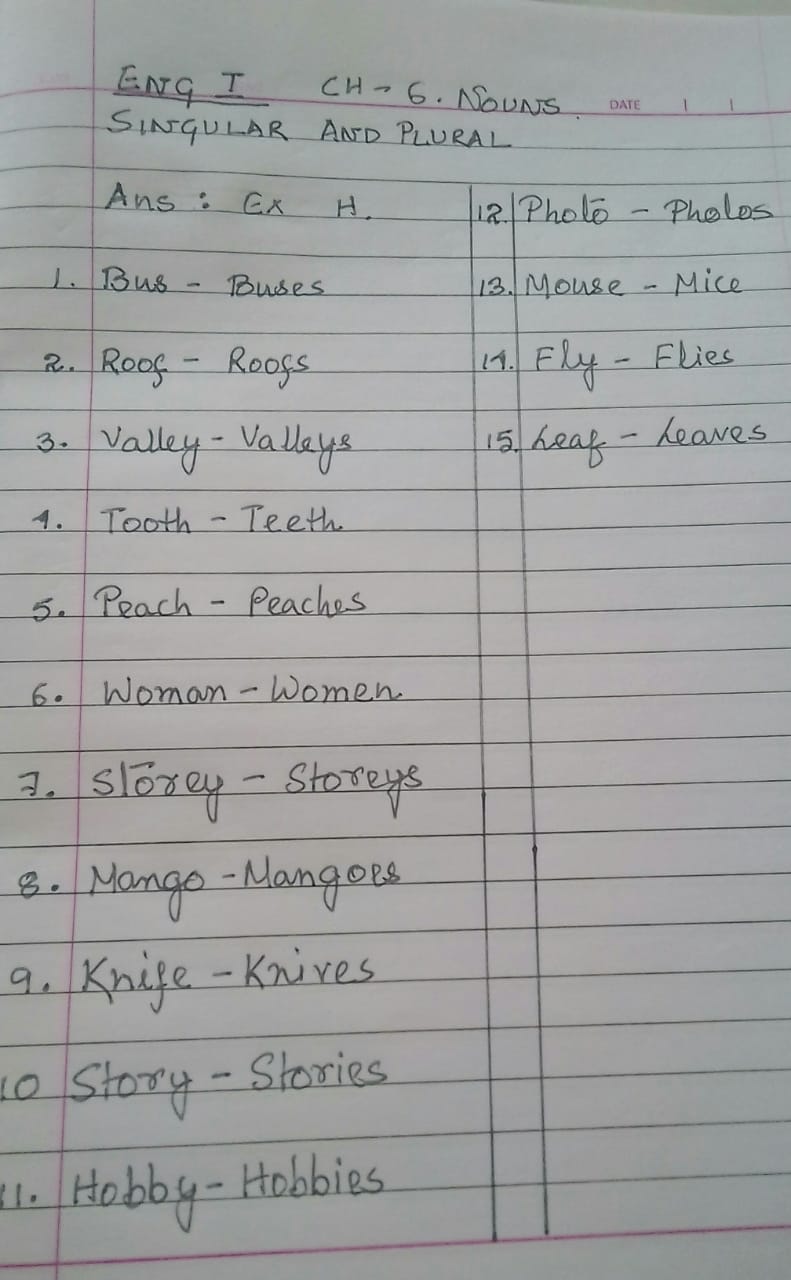 ENG I CH - 6. NOUNS.
DATE | |
SINGULAR AND PLURAL
Ans : Ex H.
1. Bus - Buses
2. Roof - Roofs
3. Valley - Valleys
4. Tooth - Teeth
5. Peach - Peaches
6. Woman - Women
7. Storey - Storeys
8. Mango - Mangoes
9. Knife - Knives
10 Story - Stories
11. Hobby - Hobbies
12. Photo - Photos
13. Mouse - Mice
14. Fly - Flies
15. Leaf - Leaves